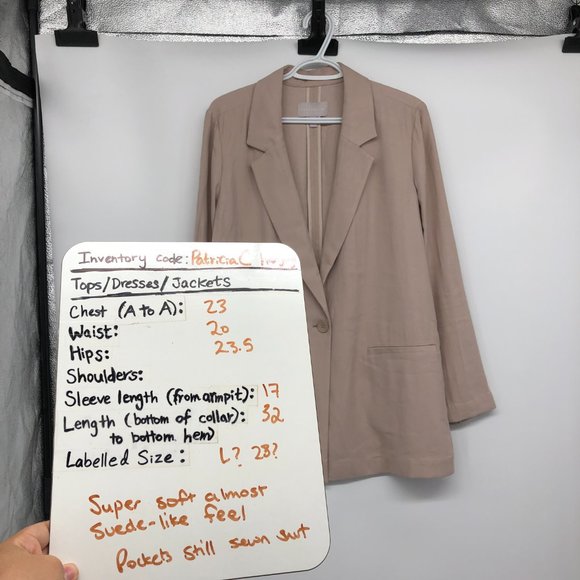 Inventory code: Patricia C
Tops/Dresses/Jackets
Chest (A to A): 23
Waist: 20
Hips: 23.5
Shoulders:
Sleeve length (from armpit): 17
Length (bottom of collar): 32
to bottom hem)
Labelled Size: L? 28?
Super soft almost
suede-like feel
Pockets still sewn shut